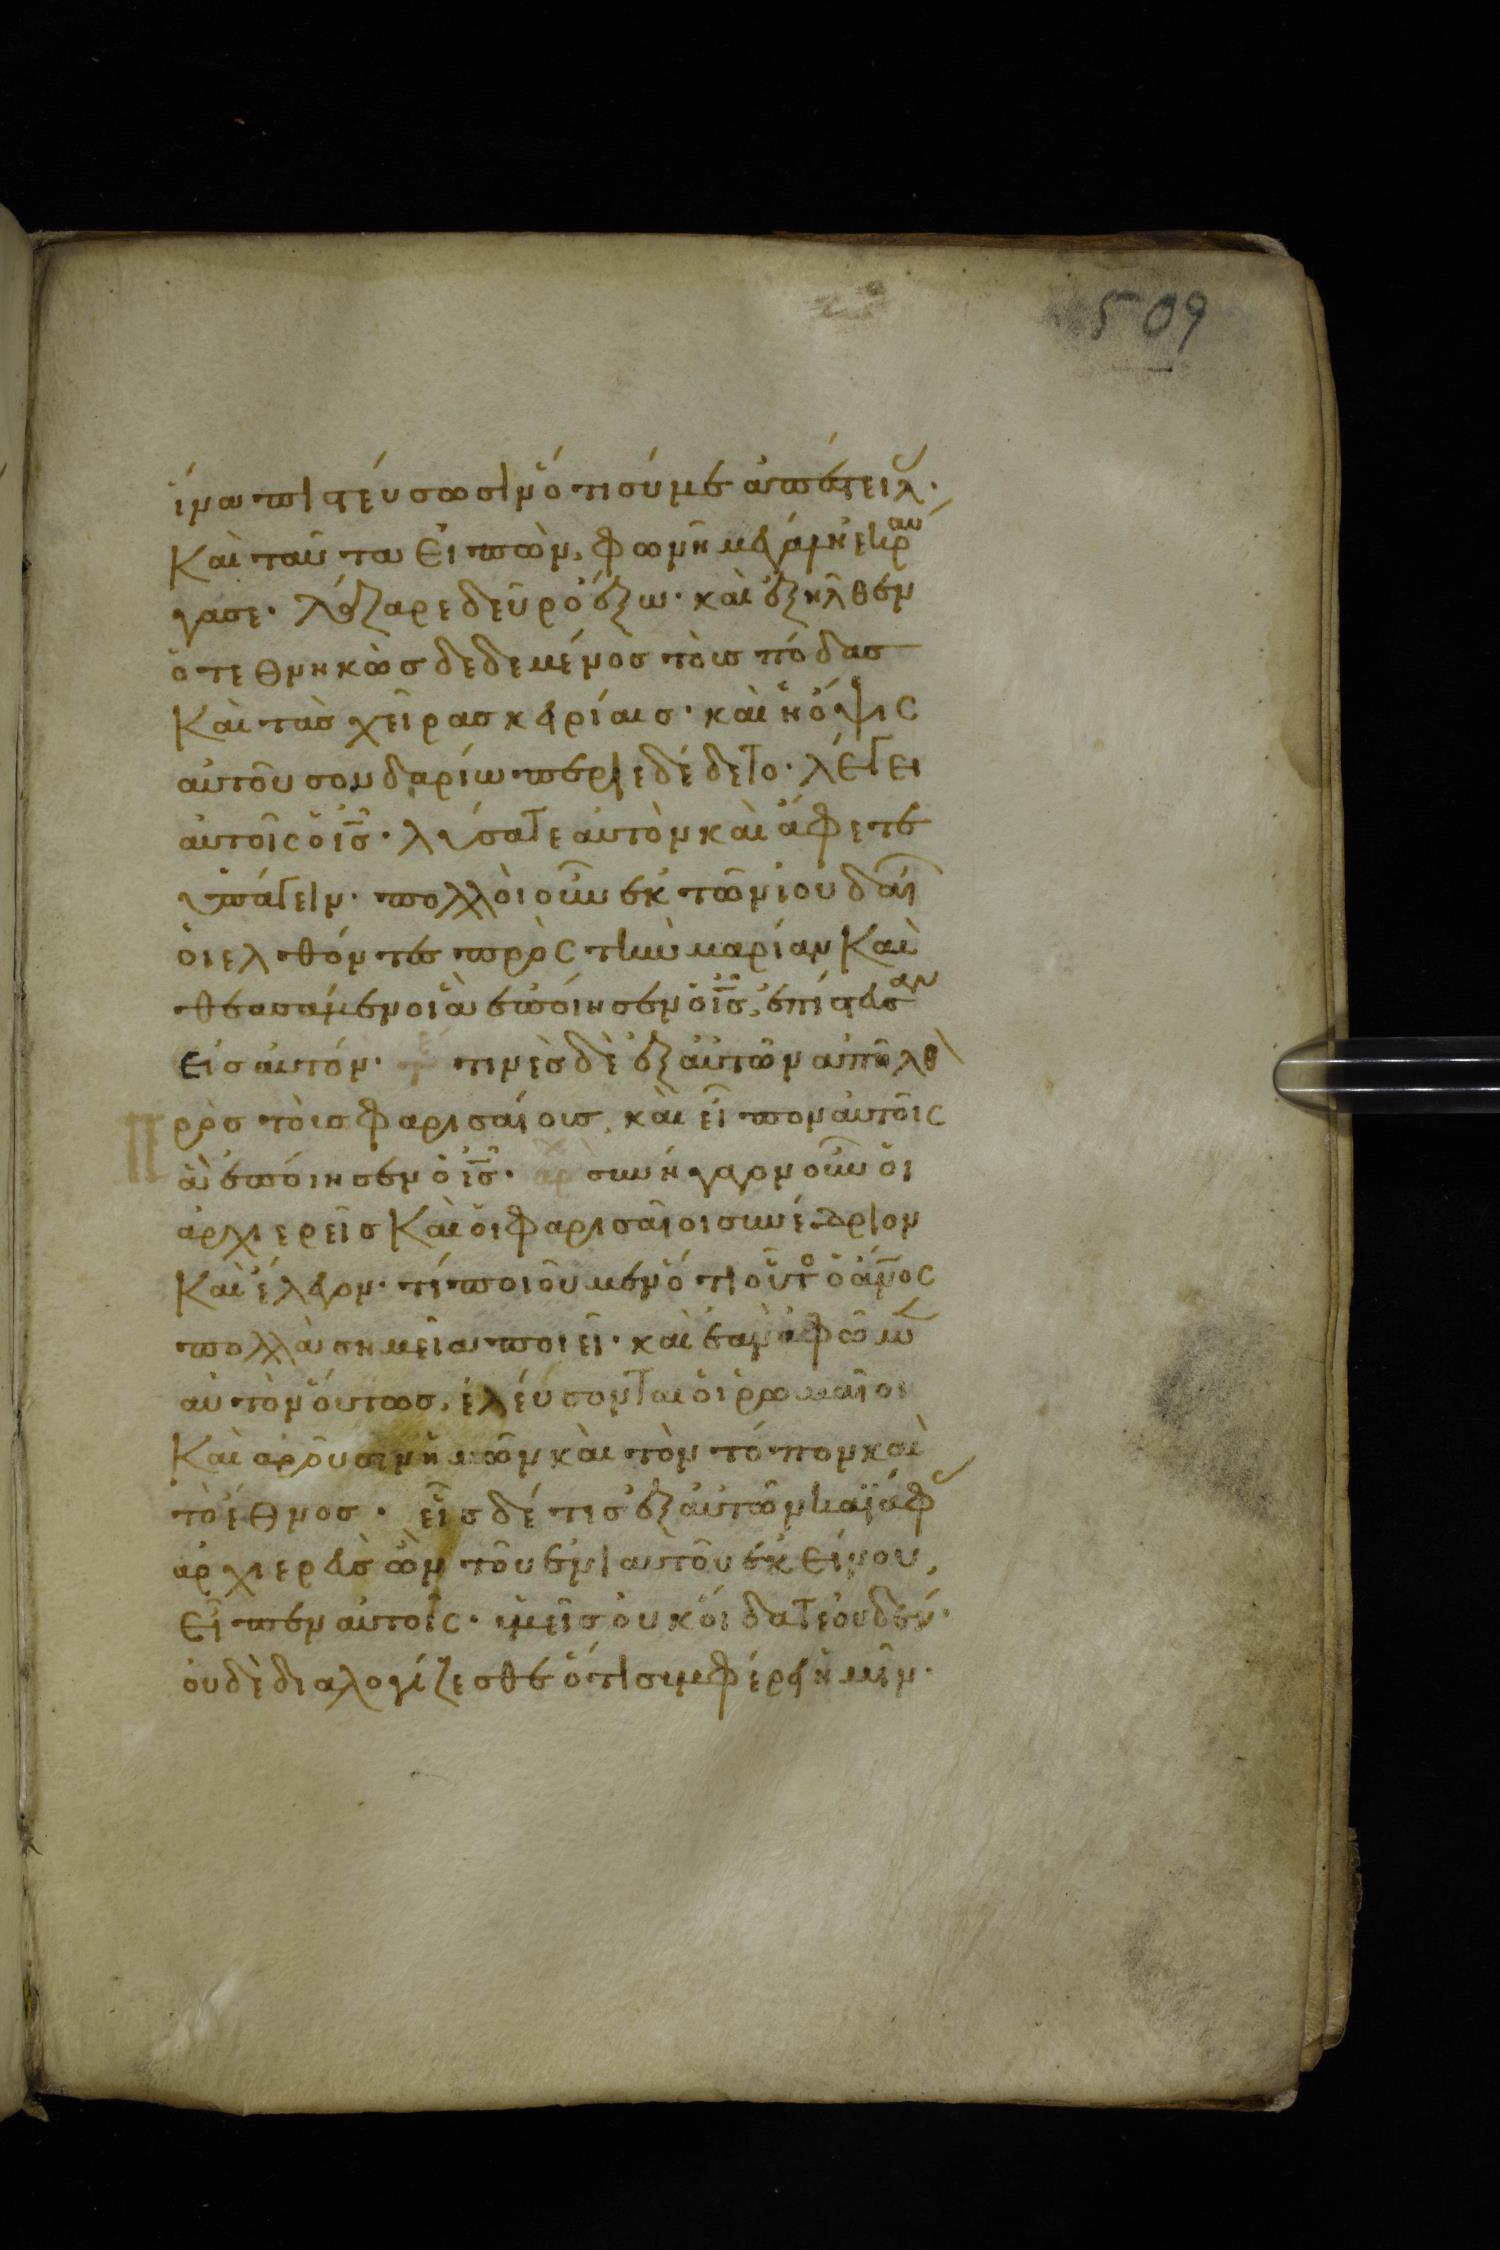 509
ἵνα πιστεύσωσιν ὅτι σύ με ἀπέστειλ.
Καὶ ταῦτα εἰπὼν, φωνῆ μεγάλη ἐκραύ
γασε. λάζαρε δεῦρο ἔξω. καὶ ἐξῆλθεν
ὁ τεθνηκὼς δεδεμένος τοὺς πόδας
Καὶ τὰς χεῖρας κειρίαις. καὶ ἡ ὄψις
αὐτοῦ σουδαρίω περιεδέδετο. λέγει
αὐτοῖς ὁ ις. λύσατε αὐτὸν καὶ ἄφετε
ὑπάγειν. πολλοὶ οὖν ἐκ τῶν ἰουδαί
οἱ ἐλθόντες πρὸς τὴν μαρίαν Καὶ
θεασάμενοι ἃ ἐποίησεν ὁ ις, ἐπίστευσαν
εἰς αὐτόν. τε τινὲς δὲ ἐξ αὐτῶν ἀπῆλθ
πρὸς τοὺς φαρισαίους, καὶ εἶπον αὐτοῖς
ἃ ἐποίησεν ὁ ις. αρχ συνήγαγον οὖν οἱ
ἀρχιερεῖς Καὶ οἱ φαρισαῖοι συνέδριον
Καὶ ἔλεγον. τί ποιοῦμεν ὅτι οὗτος ὁ ἀνος
πολλὰ σημεῖα ποιεῖ. καὶ ἐὰν ἀφῶμεν
αὐτὸν οὕτως, ἐλεύσονται οἱ ρωμαῖοι
Καὶ ἀροῦσιν ἡμῶν καὶ τὸν τόπον καὶ
τὸ ἔθνος. εἷς δέ τις ἐξ αὐτῶν καϊάφ
ἀρχιερεὺς ὢν τοῦ ἐνιαυτοῦ ἐκείνου,
εἶπεν αὐτοῖς. ὑμεῖς οὐκ οἴδατε οὐδέν.
οὐδὲ διαλογίζεσθε ὅτι συμφέρει ἡμῖν.